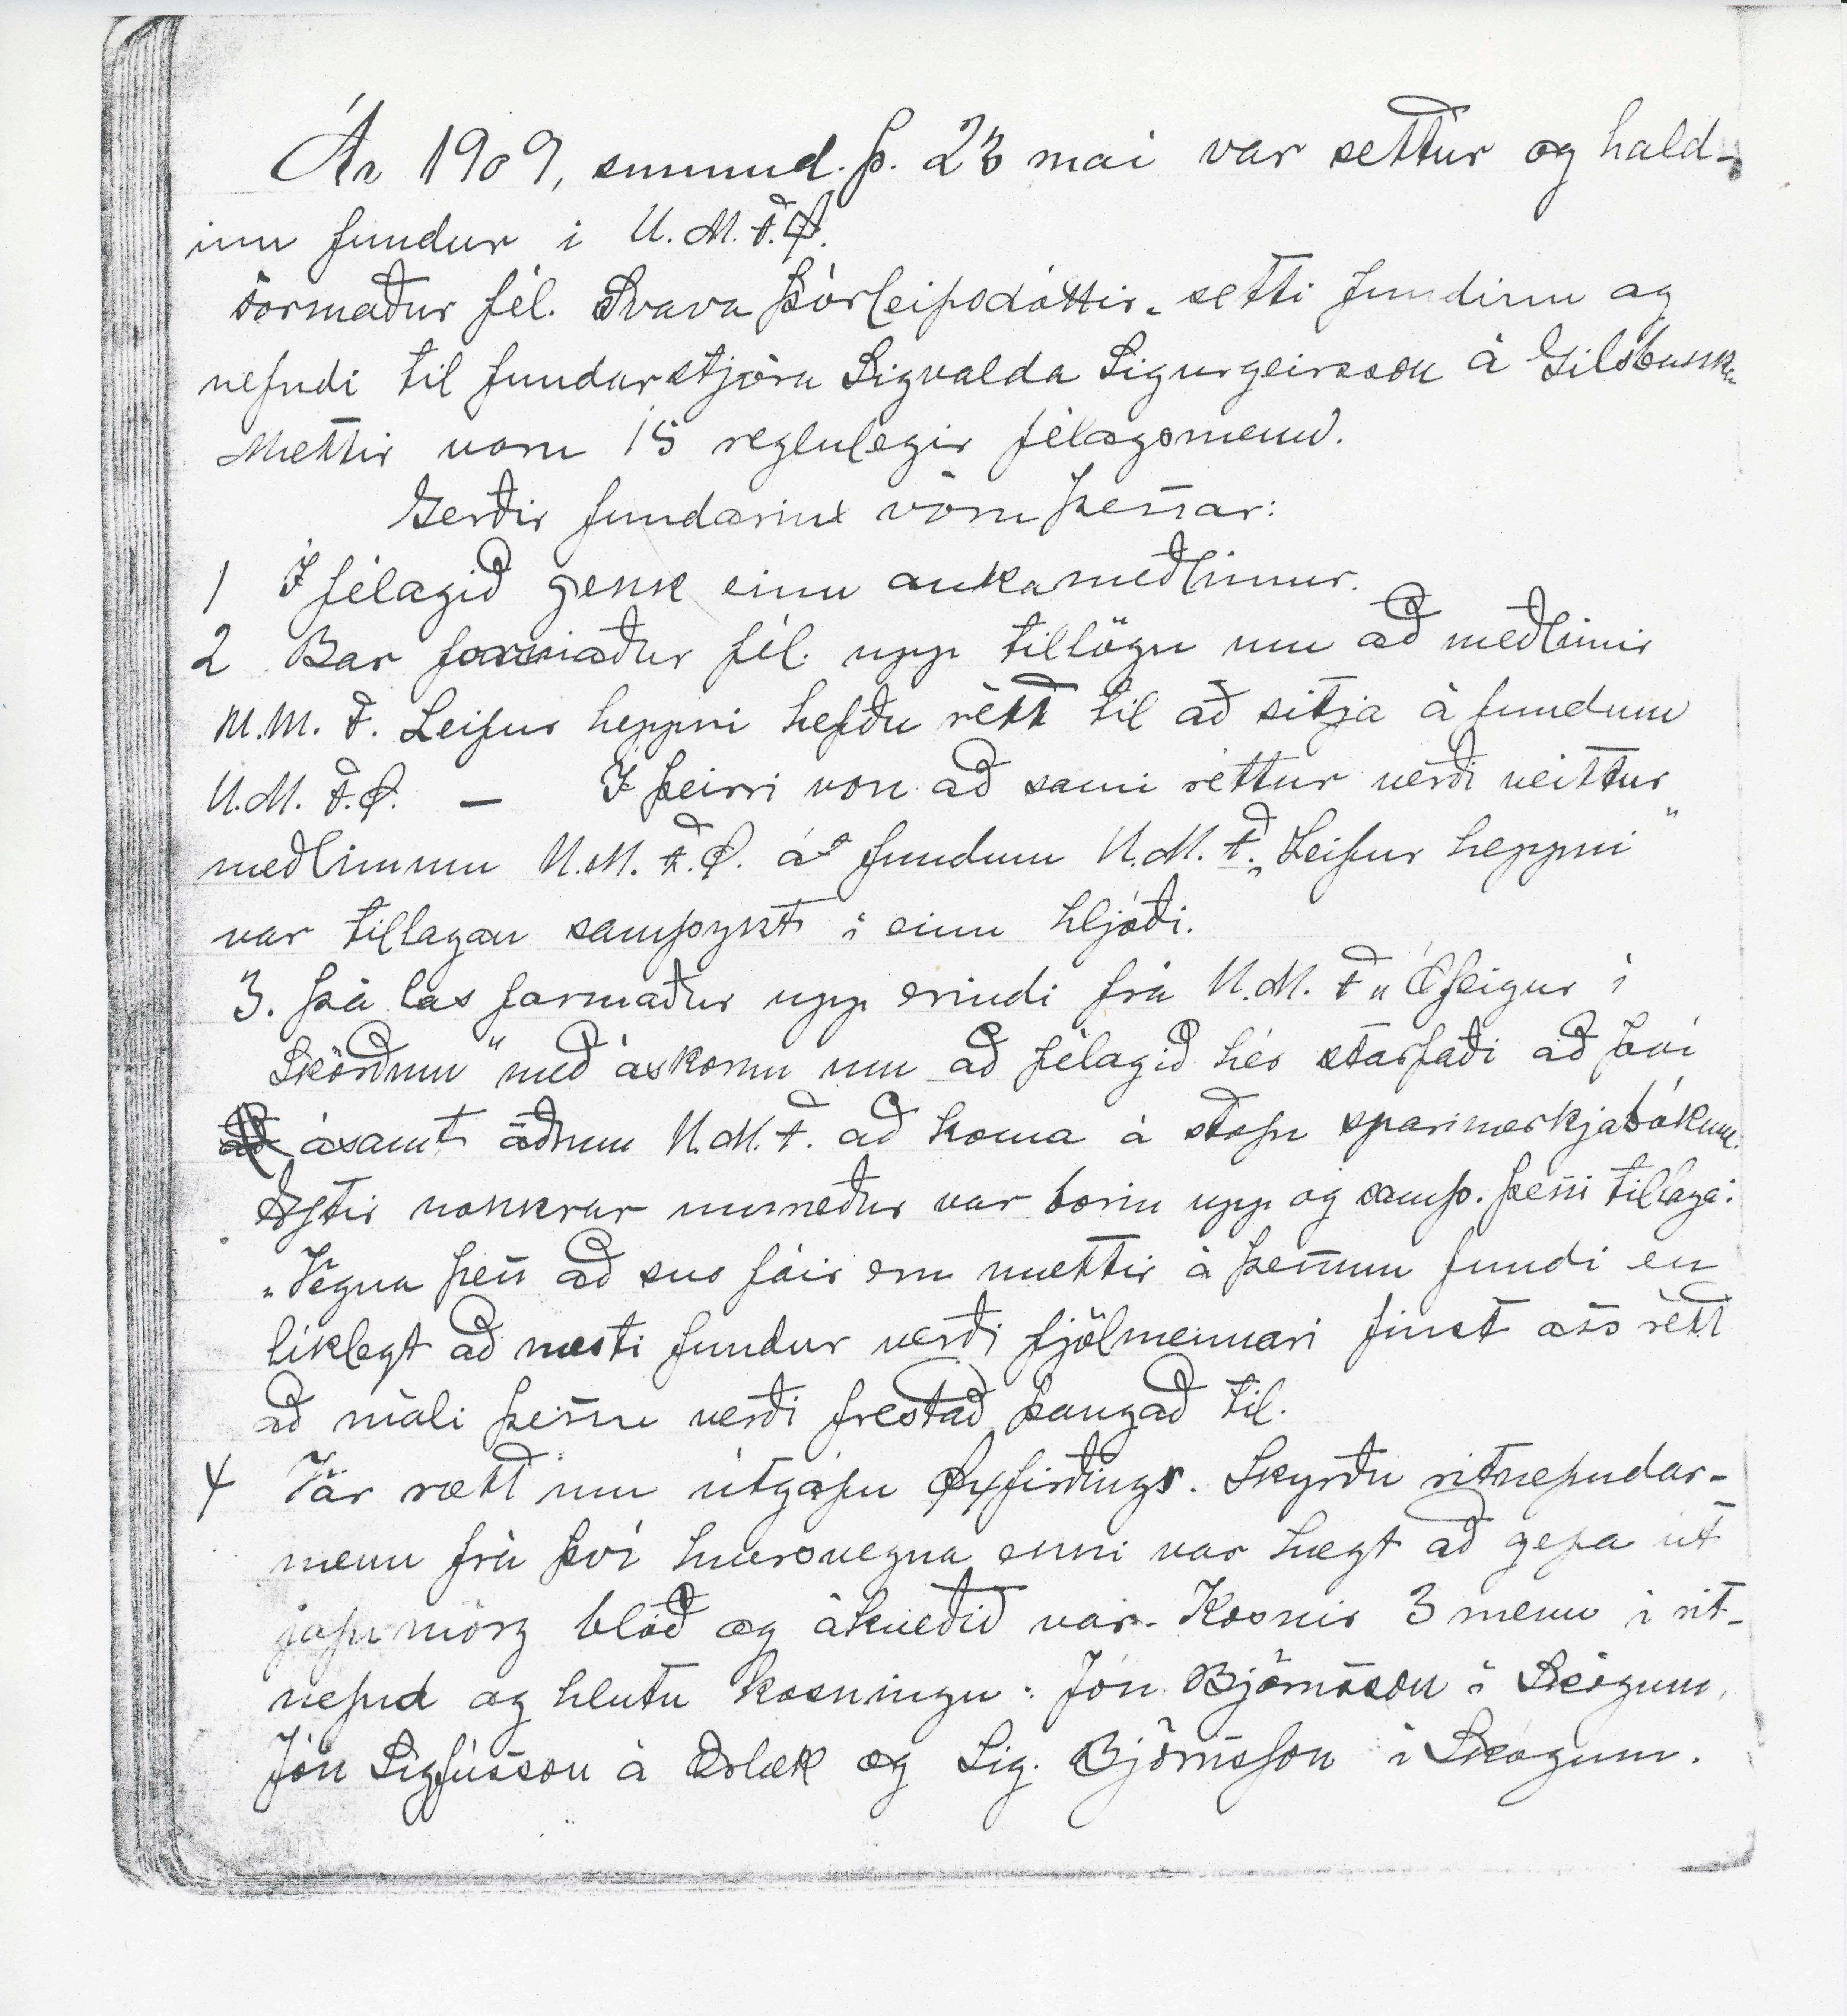 Ár 1909, sunnud. þ. 23 mai var settur og hald-
inn fundur i U.M.F.Ö.
Formaður fél. Svava Þórleifsdóttir setti fundinn og
nefndi til fundarstjóra Sigvalda Sigurgeirsson á Gilsbakk
Mættir voru 15 reglulegir félagsmenn.
Gerðir fundarins vóru þessar:
1 Í félagið gekk einn aukameðlimur.
2 Bar formaður fél. upp tillögu um að meðlimir
U.M.F. Leifur heppni hefðu rétt til að sitja á fundum
U.M.F.Ö. — Í þeirri von að sami réttur verði veittur
meðlimum U.M.F.Ö. á fundum U.M.F. „Leifur heppni“
var tillagan samþykt i einu hljóði.
3. Þá las formaður upp erindi frá U.M.F. „Ófeigur i
Skörðum“ með áskorun um að félagið hér starfaði að því
að ásamt öðrum U.M.F. að koma á stofn sparimerkjabókum.
Eftir nokkrar umræður var borin upp og samþ. þessi tillaga:
„Vegna þess að svo fáir eru mættir á þessum fundi en
líklegt að næsti fundur verði fjölmennari finst oss rétt
að máli þessu verði frestað þangað til.
4 Var rætt um útgáfu Öxfirðings. Skyrðu ritnefndar-
menn frá því hversvegna enni var hægt að gefa út
jafnmörg blöð og ákveðið var. Kosnir 3 menn i rit-
nefnd og hlutu kosningu: Jón Björnsson i Skógum,
Jón Sigfússon á Ærlæk og Sig. Björnsson i Skógum.